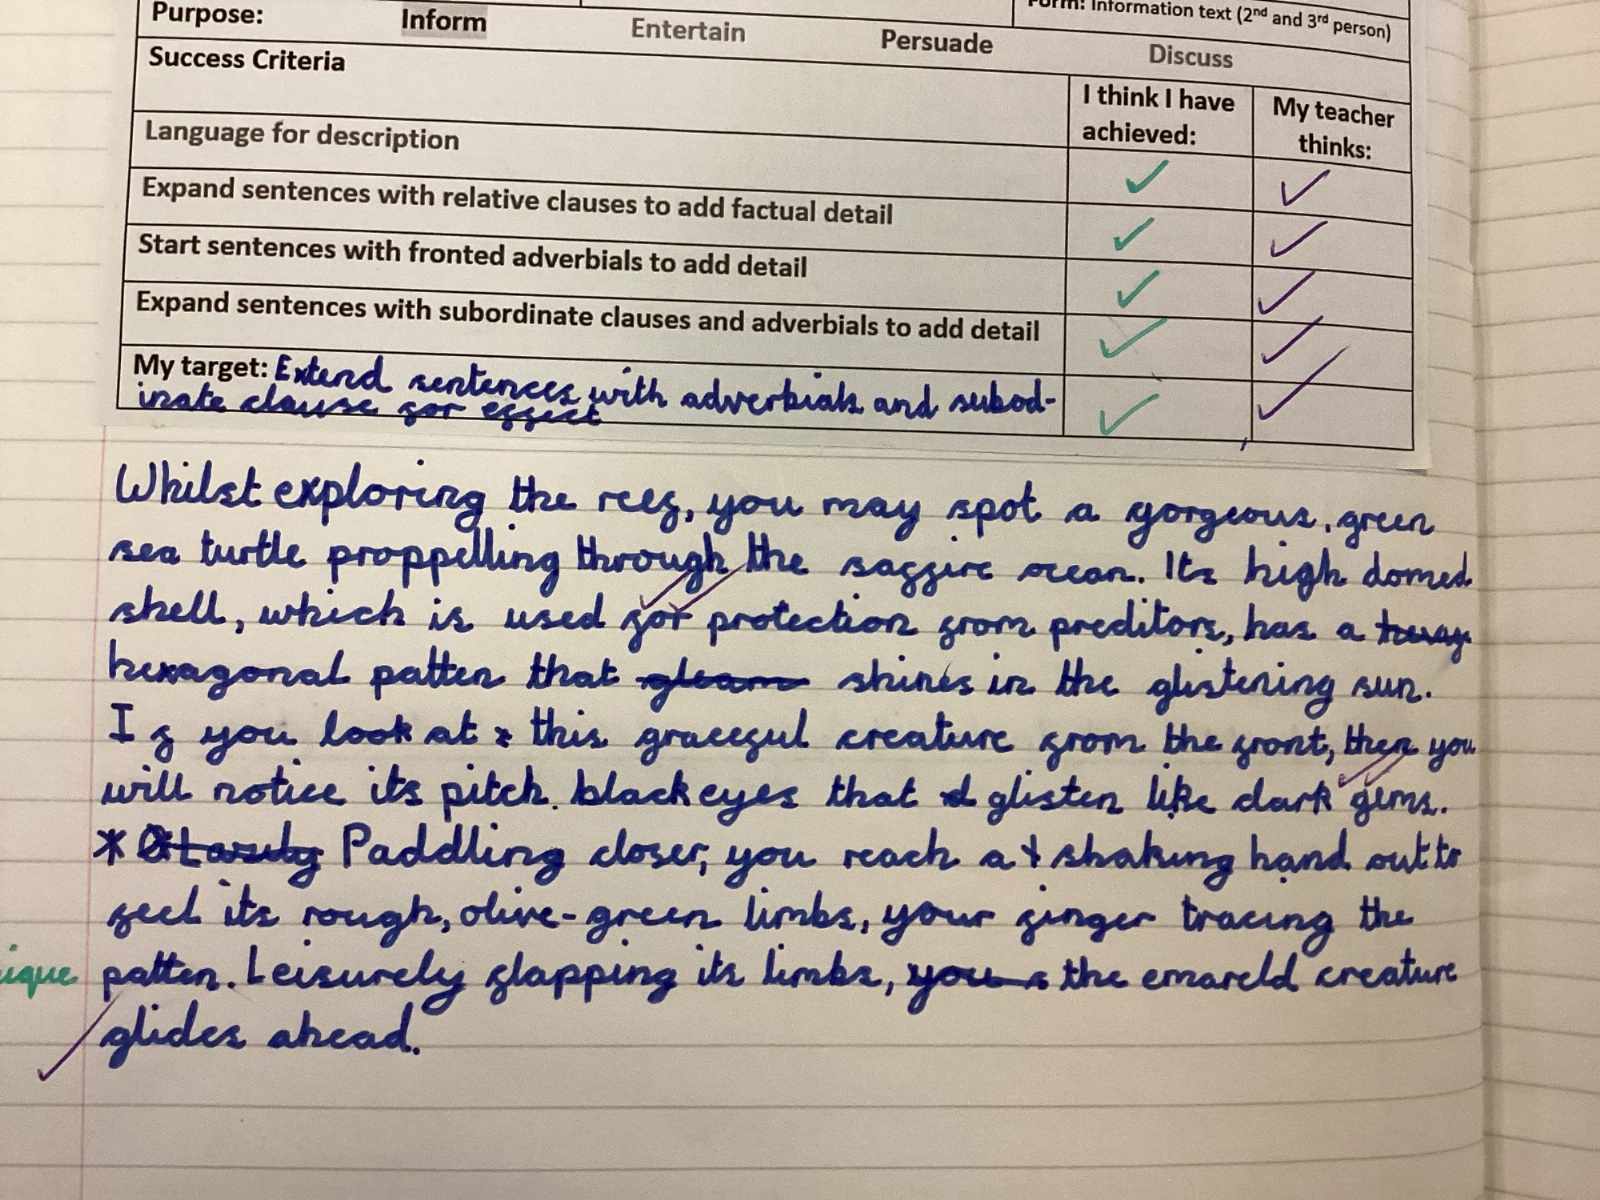 Purpose: Inform Entertain Persuade Discuss
Form: Information text (2nd and 3rd person)
Success Criteria
I think I have achieved:
My teacher thinks:
Language for description ✓ ✓
Expand sentences with relative clauses to add factual detail ✓ ✓
Start sentences with fronted adverbials to add detail ✓ ✓
Expand sentences with subordinate clauses and adverbials to add detail ✓ ✓
My target: Extend sentences with adverbials and subod-
inate clause for effect ✓ ✓
Whilst exploring the reef, you may spot a gorgeous, green
sea turtle proppelling through the saffire ocean. Its high domed
shell, which is used for protection from preditors, has a
hexagonal patten that gleam shines in the glistening sun.
If you look at this graceful creature from the front, then you
will notice its pitch black eyes that glisten like dark gems.
* Paddling closer, you reach a shaking hand out to
feel its rough, olive-green limbs, your finger tracing the
ique patten. Leisurely flapping its limbs, you the emareld creature
glides ahead.